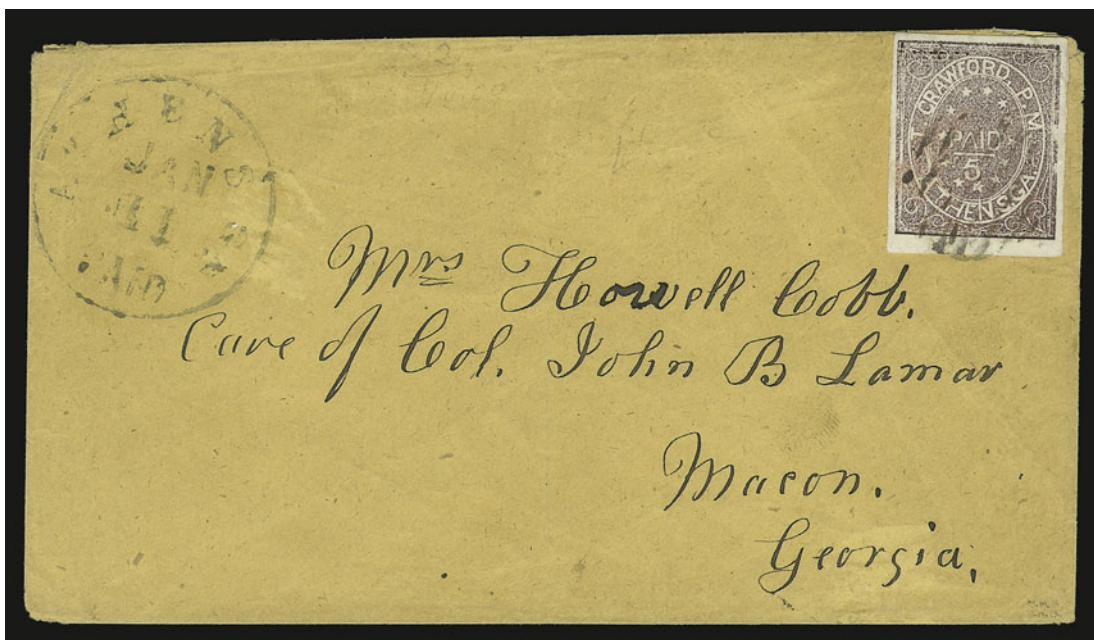 ATHENS
JAN
11
PAID
T. CRAWFORD. P.M.
PAID
5
ATHENS, GA.
Mrs Howell Cobb.
Care of Col. John B Lamar
Macon.
Georgia,